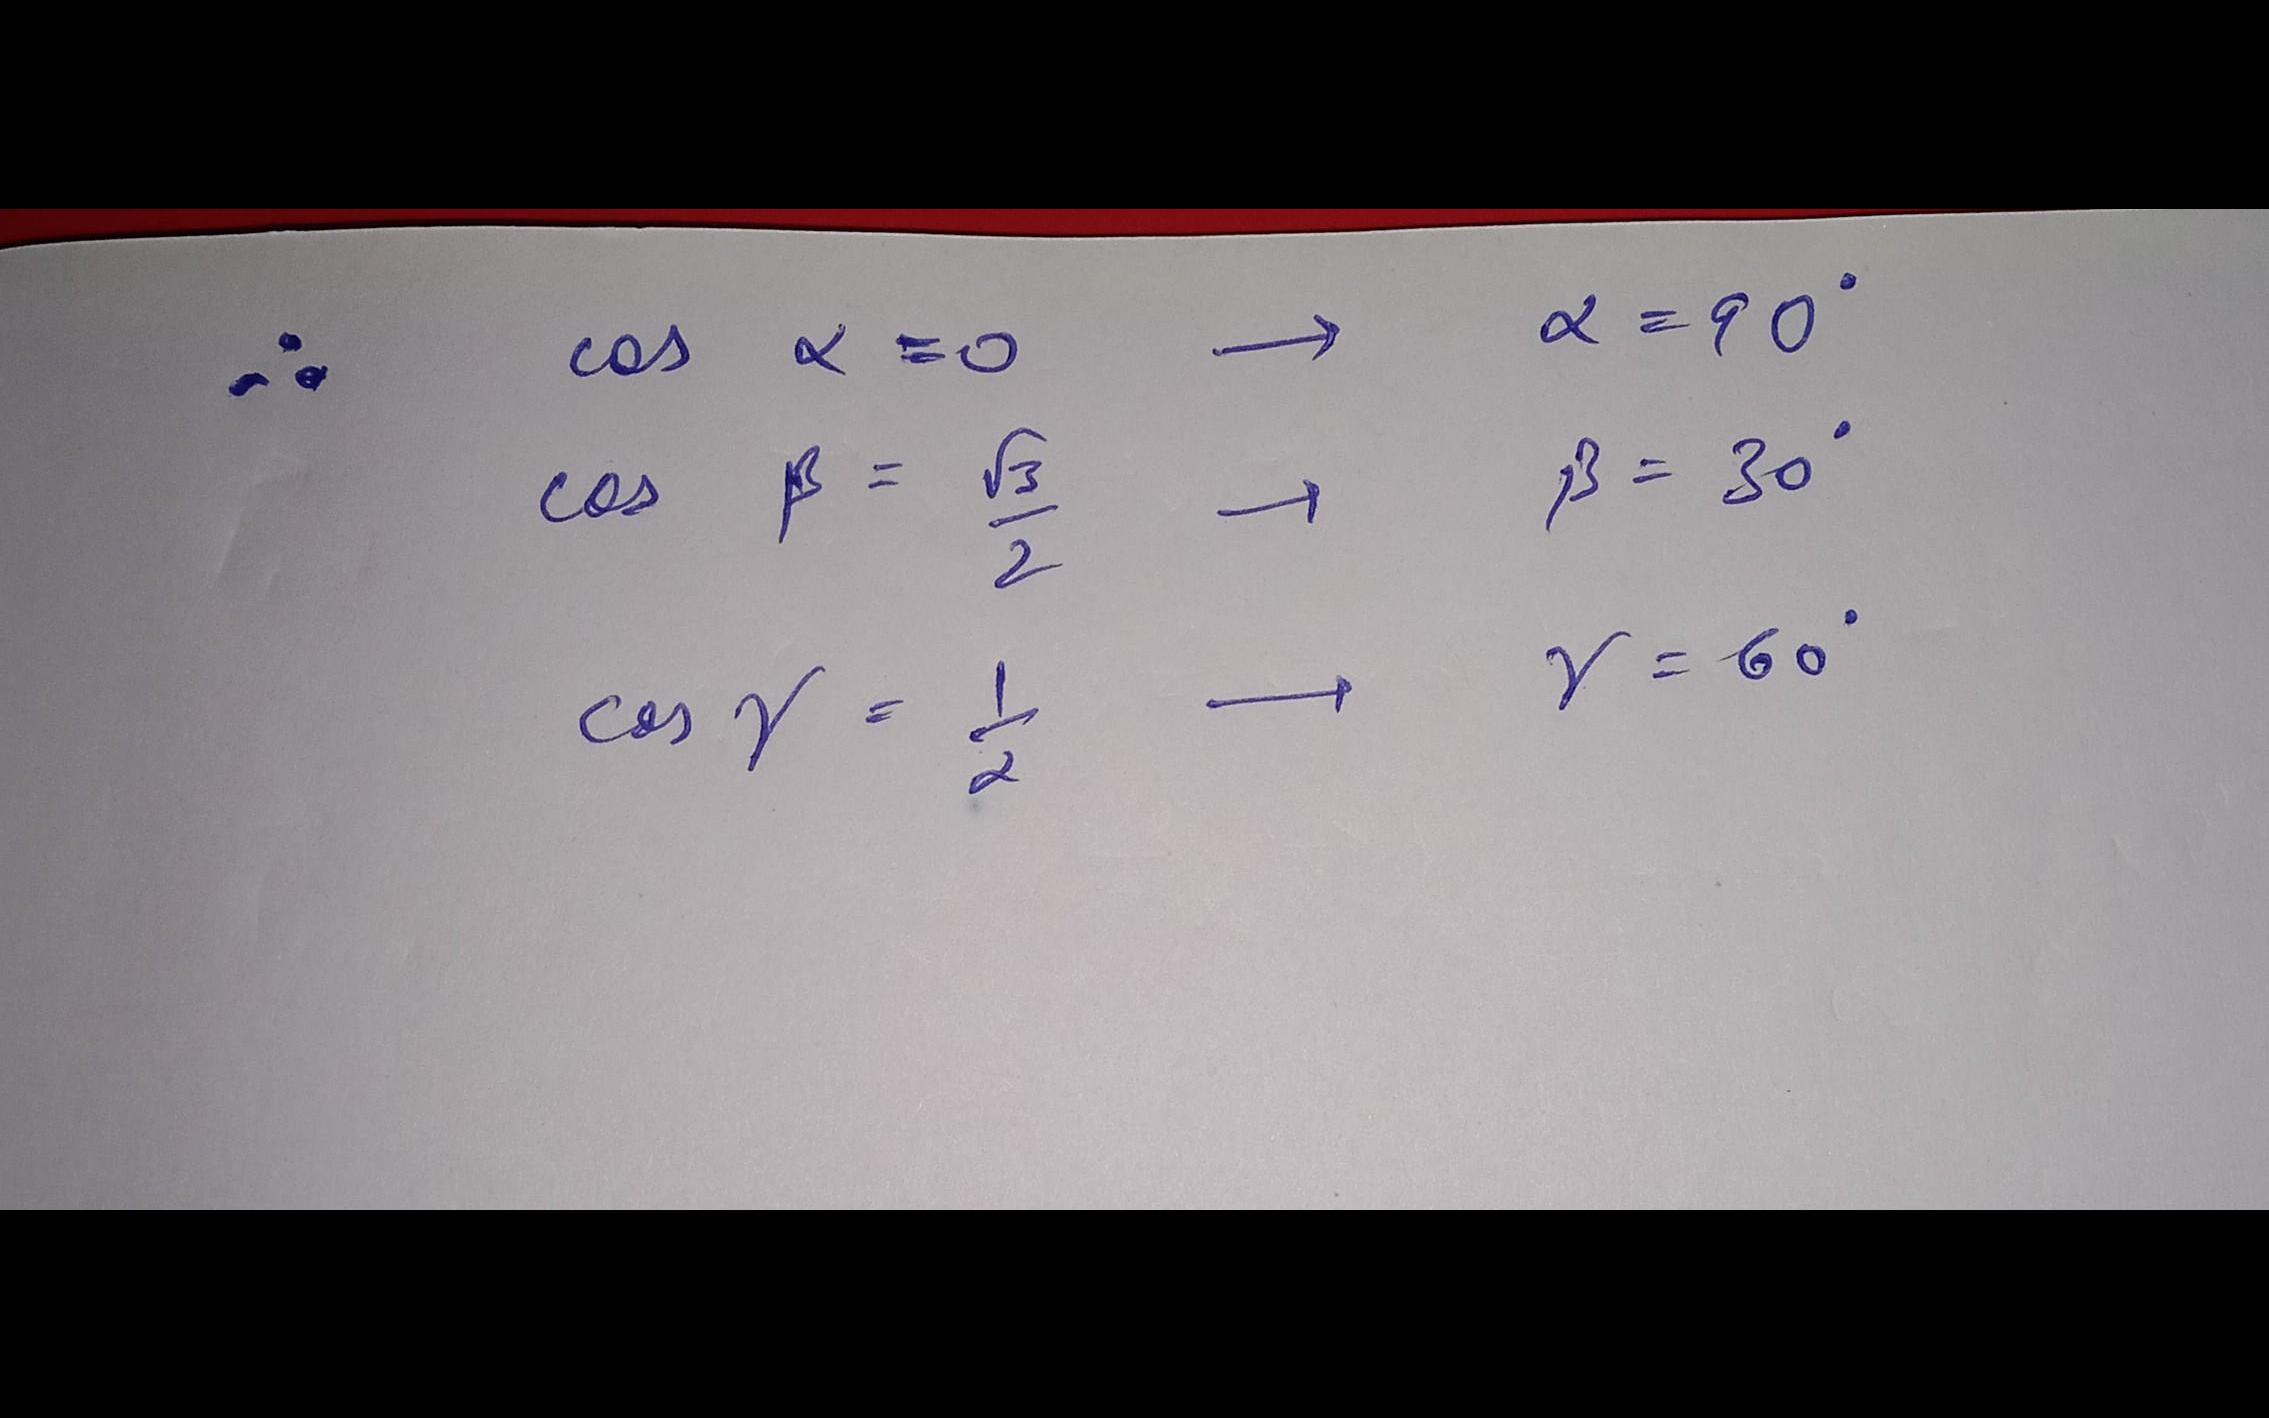 ∴ cos α = 0 → α = 90°
cos β = √3/2 → β = 30°
cos γ = 1/2 → γ = 60°